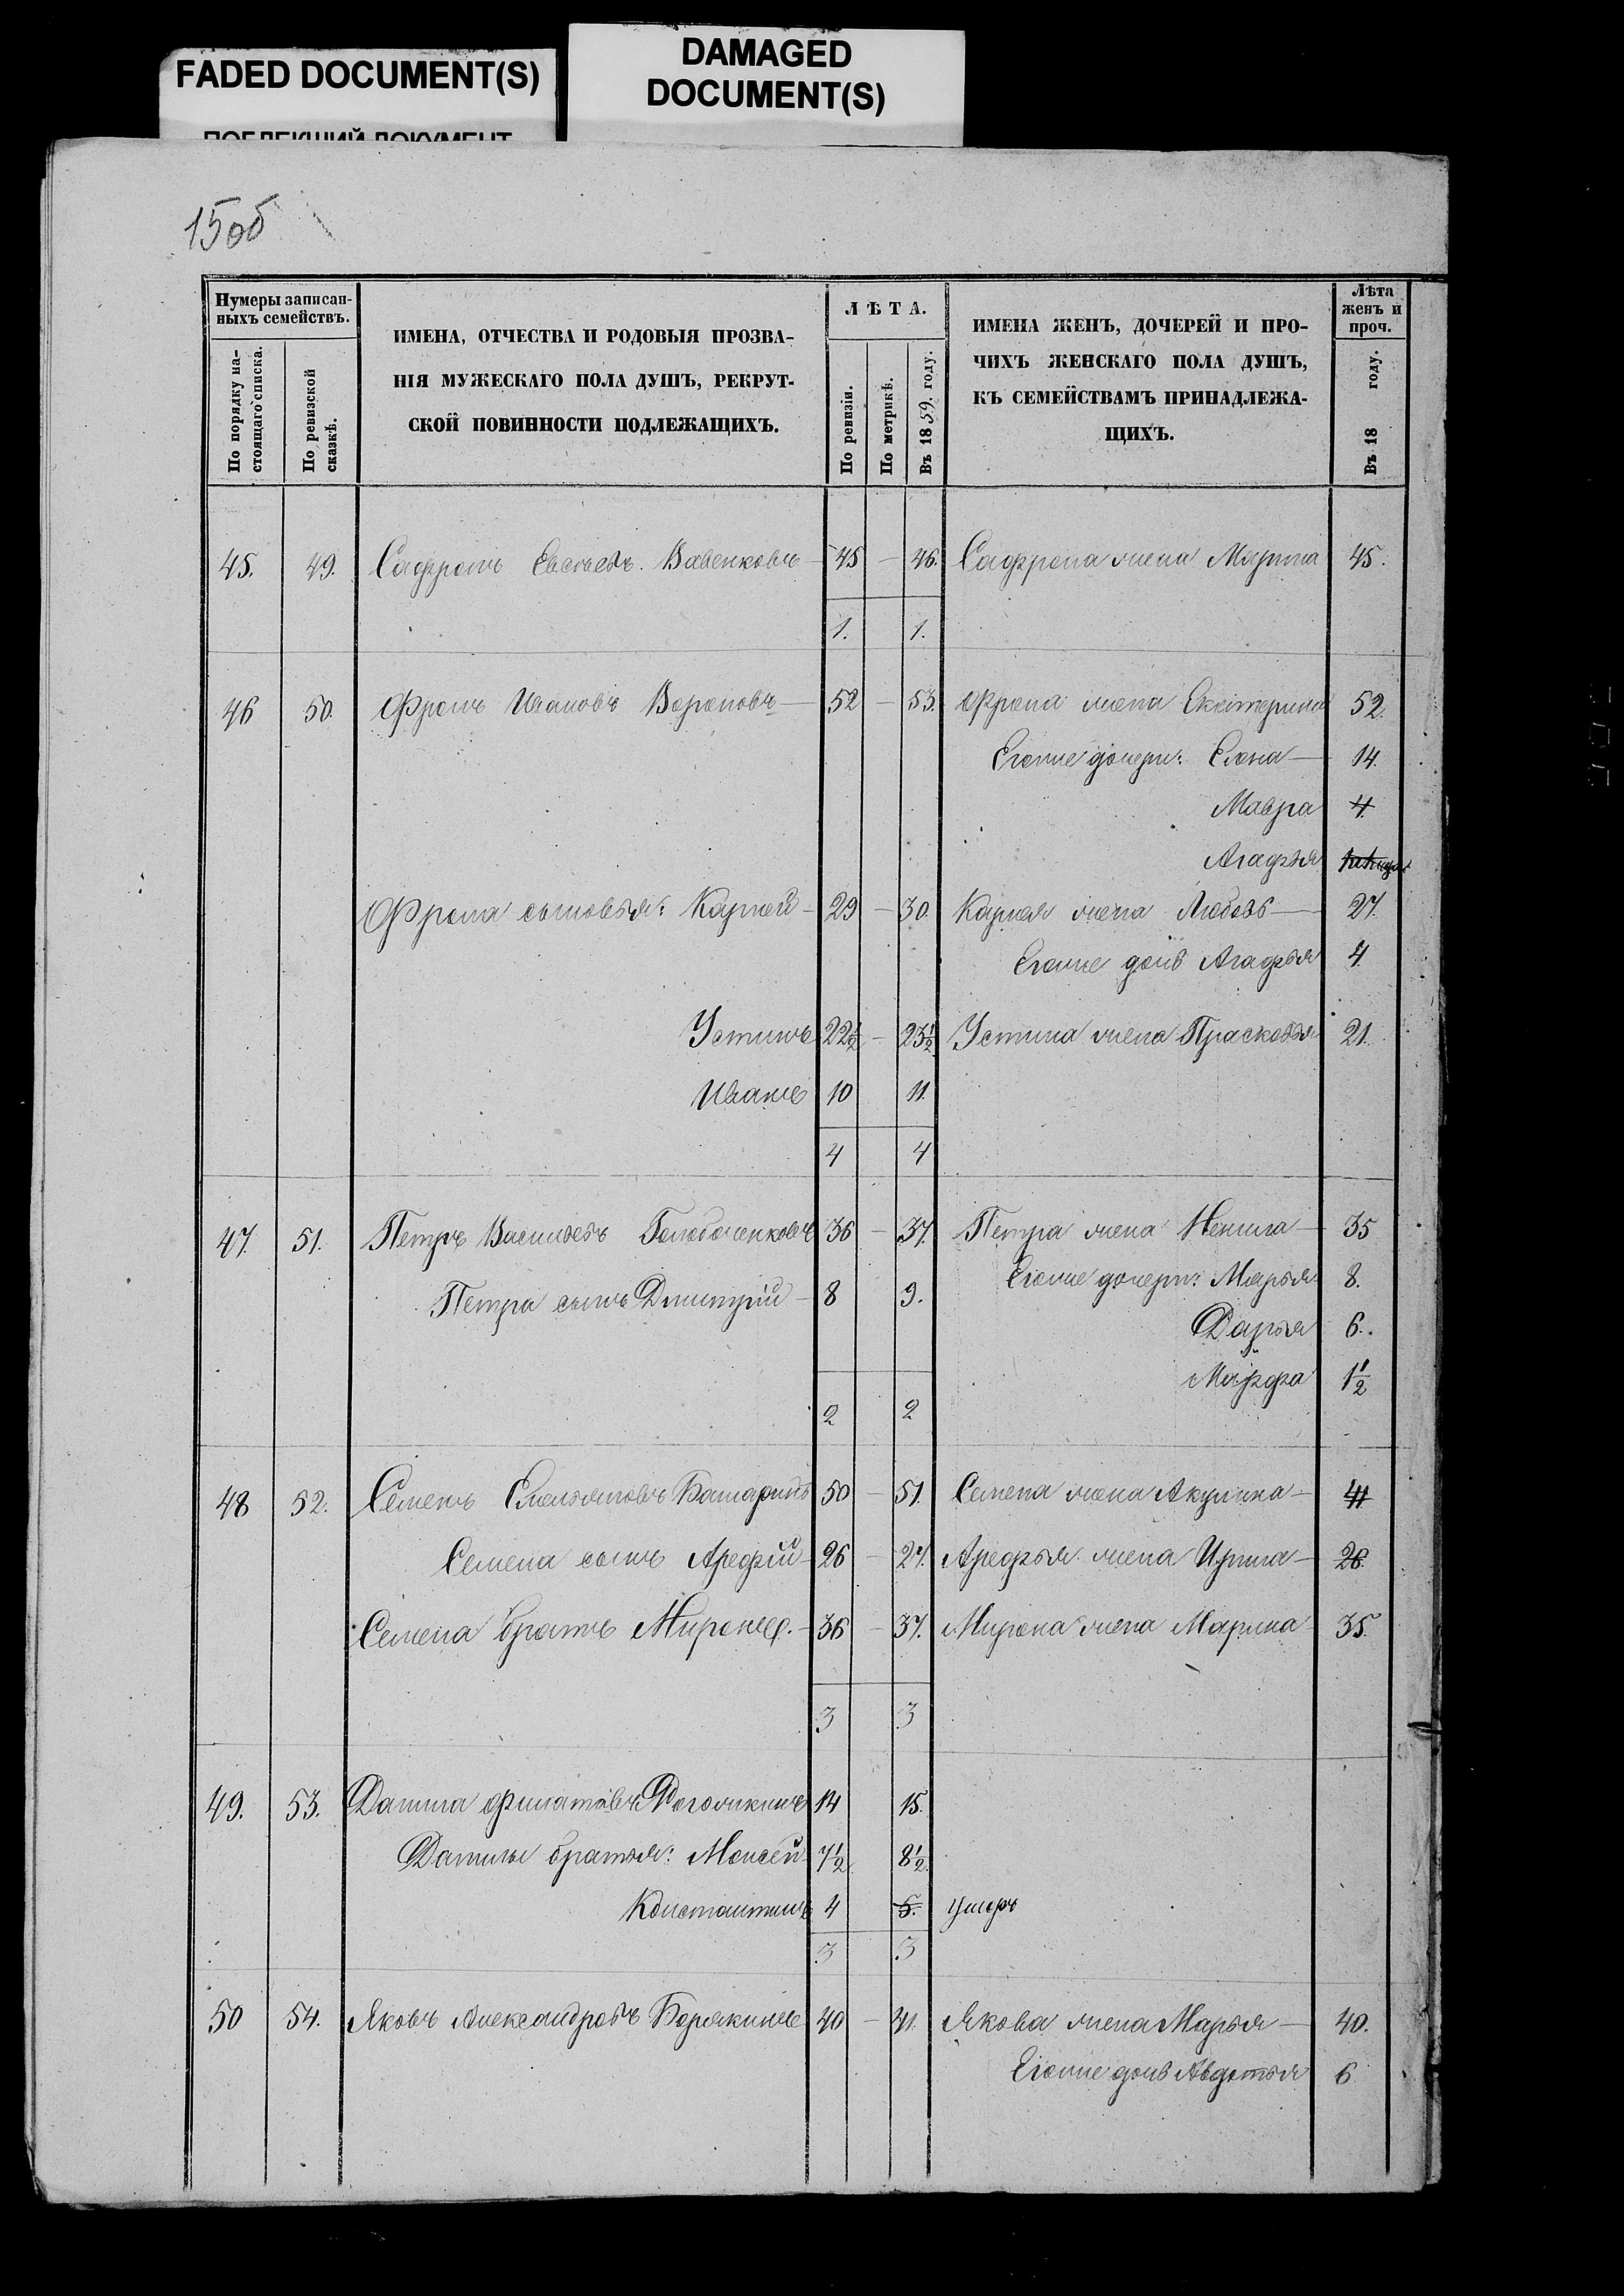 FADED DOCUMENT(S)
DAMAGED
DOCUMENT(S)
ПОБЛЕКШИЙ ДОКУМЕНТ
15об
Нумеры записан-
ныхъ семействъ.
По порядку на-
стоящаго списка.
По ревизской
сказкѣ.
ИМЕНА, ОТЧЕСТВА И РОДОВЫЯ ПРОЗВА-
НІЯ МУЖЕСКАГО ПОЛА ДУШЪ, РЕКРУТ-
СКОЙ ПОВИННОСТИ ПОДЛЕЖАЩИХЪ.
ЛѢТА.
По ревизіи.
По метрикѣ.
Въ 1859. году.
ИМЕНА ЖЕНЪ, ДОЧЕРЕЙ И ПРО-
ЧИХЪ ЖЕНСКАГО ПОЛА ДУШЪ,
КЪ СЕМЕЙСТВАМЪ ПРИНАДЛЕЖА-
ЩИХЪ.
Лѣта
женъ и
проч.
Въ 18 году.
45. 49. Сафронъ Вавенковъ 45 — 46. Сафрона жена Марина 45.
1. 1.
46 50. Фролъ Ивановъ Вороновъ — 52 — 53. Фрола жена Екатерина 52.
Егоже дочери: Елена — 14.
Мавра 4.
Агафья
Фрола сыновья: Карпей — 29 — 30. Карпея жена Любовь — 27.
Егоже дочь Агафья 4.
Устинъ 22½ — 23½ Устина жена Прасковья 21.
Иванъ 10 11.
4 4
47. 51. Петръ Васильевъ Голобоченковъ 36 — 37. Петра жена Ненила — 35
Петра сынъ Дмитрій — 8 9. Егоже дочери: Марья 8.
Дарья 6.
Марфа 1½
2 2
48 52. Семенъ Емельяновъ Батаринъ 50 — 51. Семена жена Акулина — 41
Семена сынъ Арефій — 26 — 27. Арефья жена Ирина — 26.
Семена братъ Миронъ. — 36 — 37. Мирона жена Марина 35.
3 3
49. 53. Данила Филатовъ Рогожкинъ 14 15.
Данилы братья: Моисей 7½ 8½
Константинъ 4 5. умеръ
3 3
50 54. Яковъ Александровъ Борякинъ 40 — 41. Якова жена Марья — 40.
Егоже дочь Авдотья 6